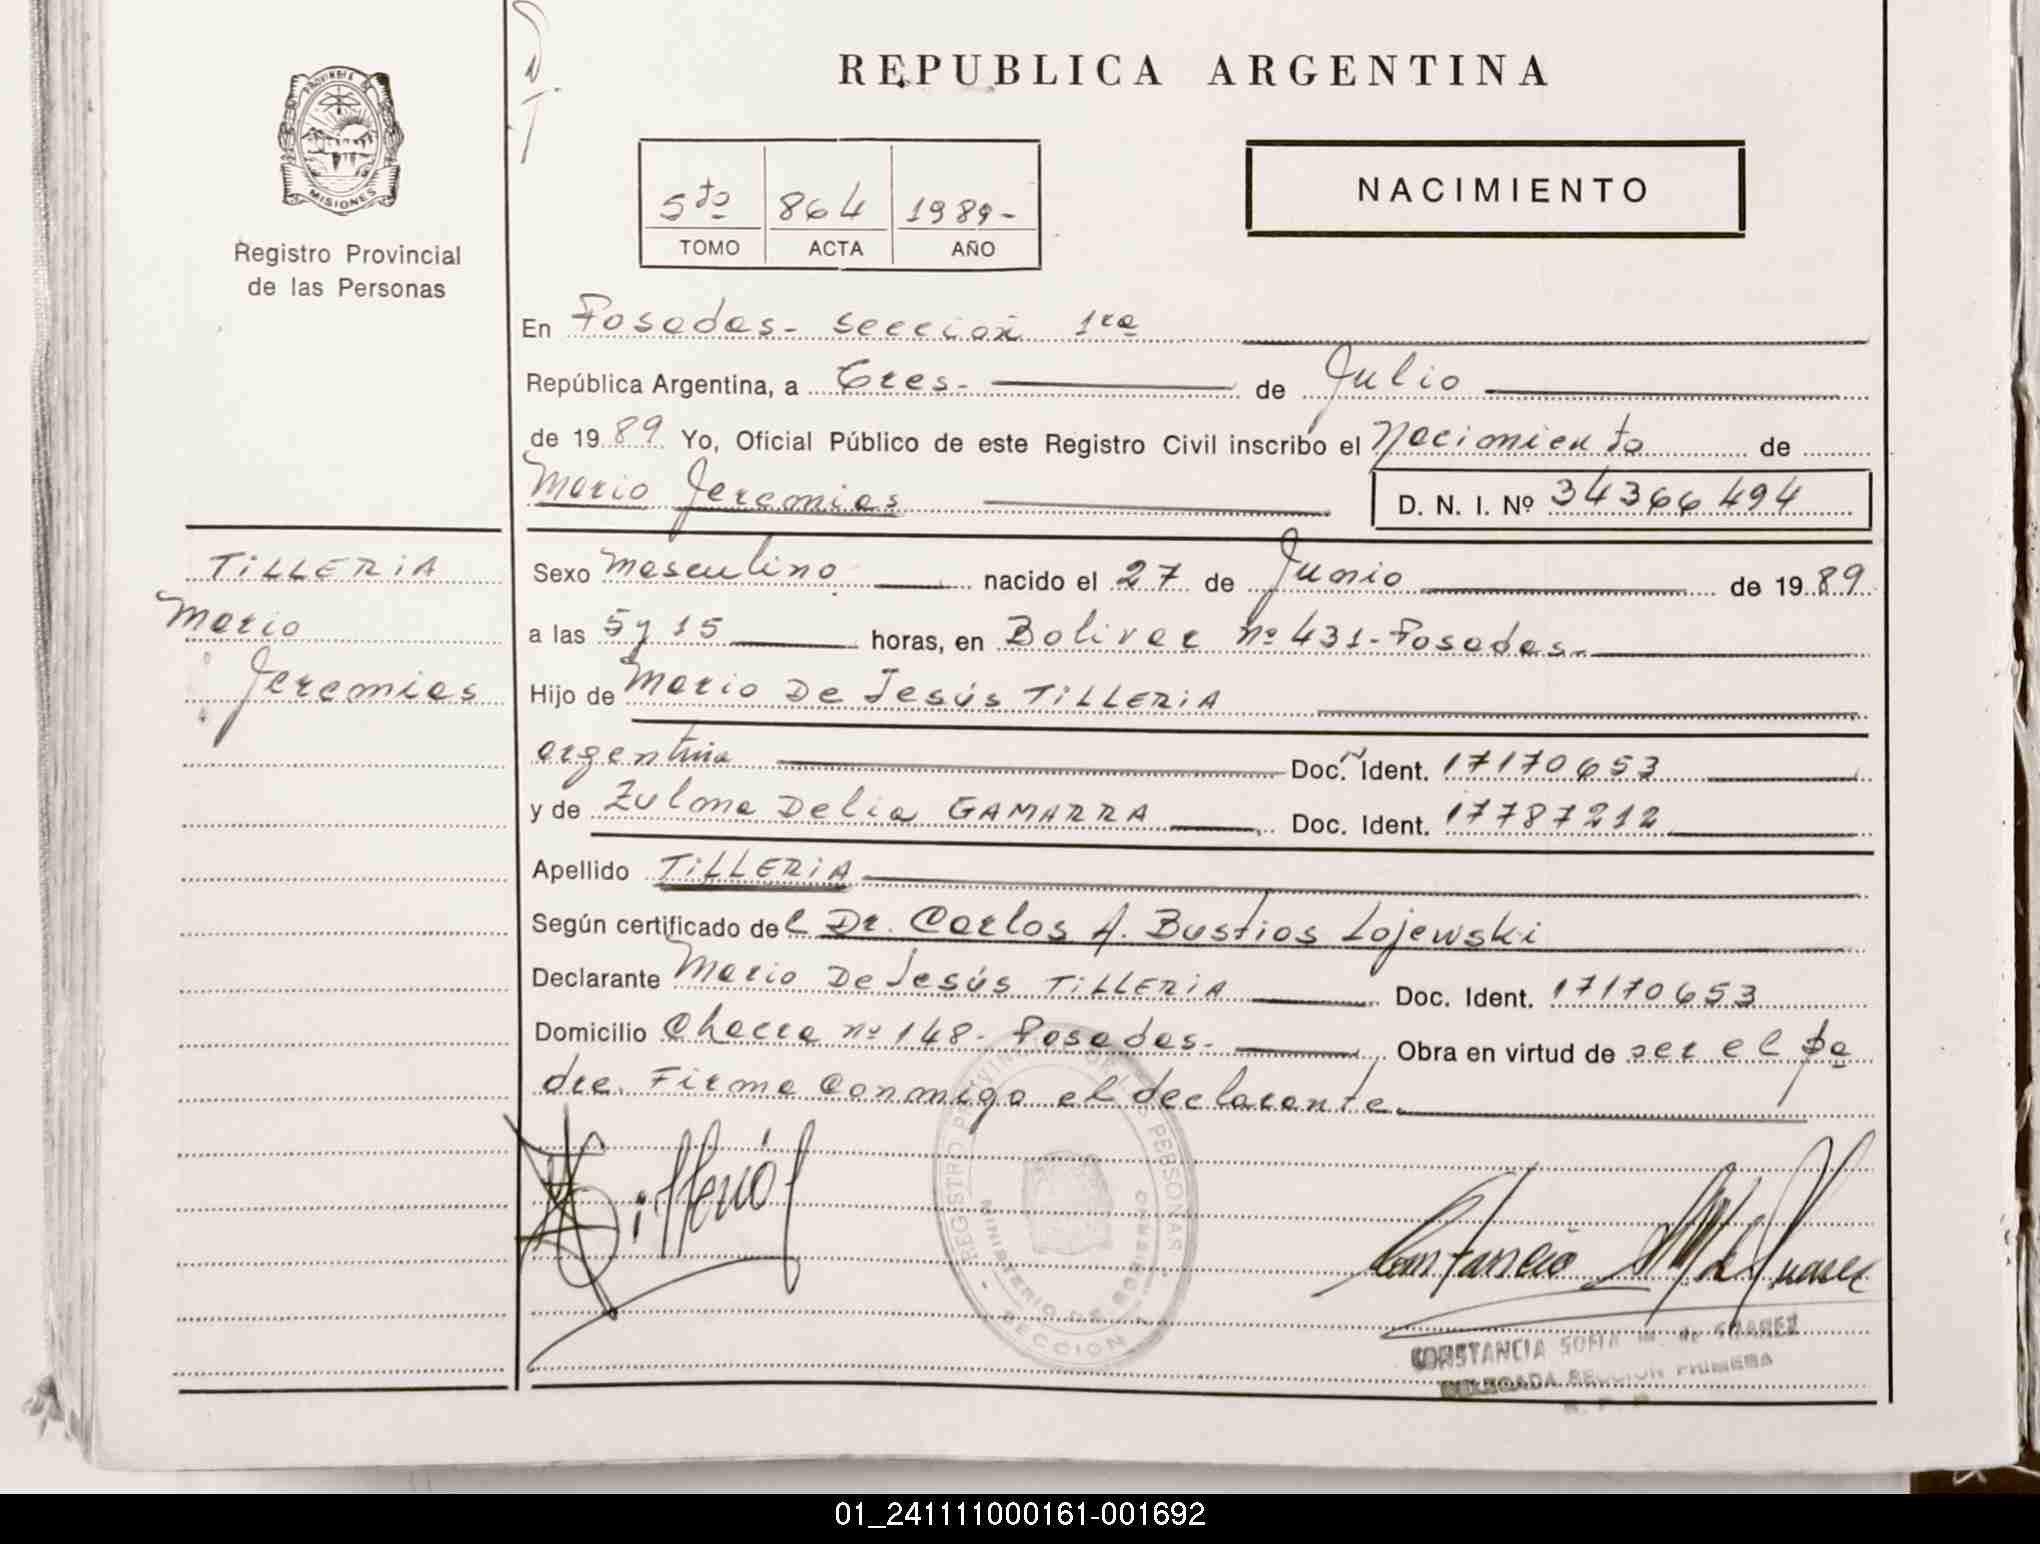 REPUBLICA ARGENTINA
PROVINCIA DE
MISIONES
Registro Provincial
de las Personas
5to 864 1989-
TOMO ACTA AÑO
NACIMIENTO
En Posadas- sección 1ra
República Argentina, a Tres- de Julio
de 1989 Yo, Oficial Público de este Registro Civil inscribo el Nacimiento de
Mario Jeremias D. N. I. Nº 34366494
TiLLERiA
Mario
Jeremias
Sexo Masculino nacido el 27 de Junio de 1989
a las 5 y 15 horas, en Bolivar nº 431-Posadas-
Hijo de Mario De Jesús TiLLERiA
argentina Doc. Ident. 17170653
y de Zulma Delia GAMARRA Doc. Ident. 17787212
Apellido TiLLERiA
Según certificado del Dr. Carlos A. Bustios Lojewski
Declarante Mario De Jesús TiLLERiA Doc. Ident. 17170653
Domicilio Chacra nº 148- Posadas- Obra en virtud de ser el pa
dre. Firma conmigo el declarante.
REGISTRO PROVINCIAL DE LAS PERSONAS
MINISTERIO DE GOBIERNO
SECCION
CONSTANCIA SOFIA M. de SUAREZ
DELEGADA SECCION PRIMERA
R. P. P.
01_241111000161-001692